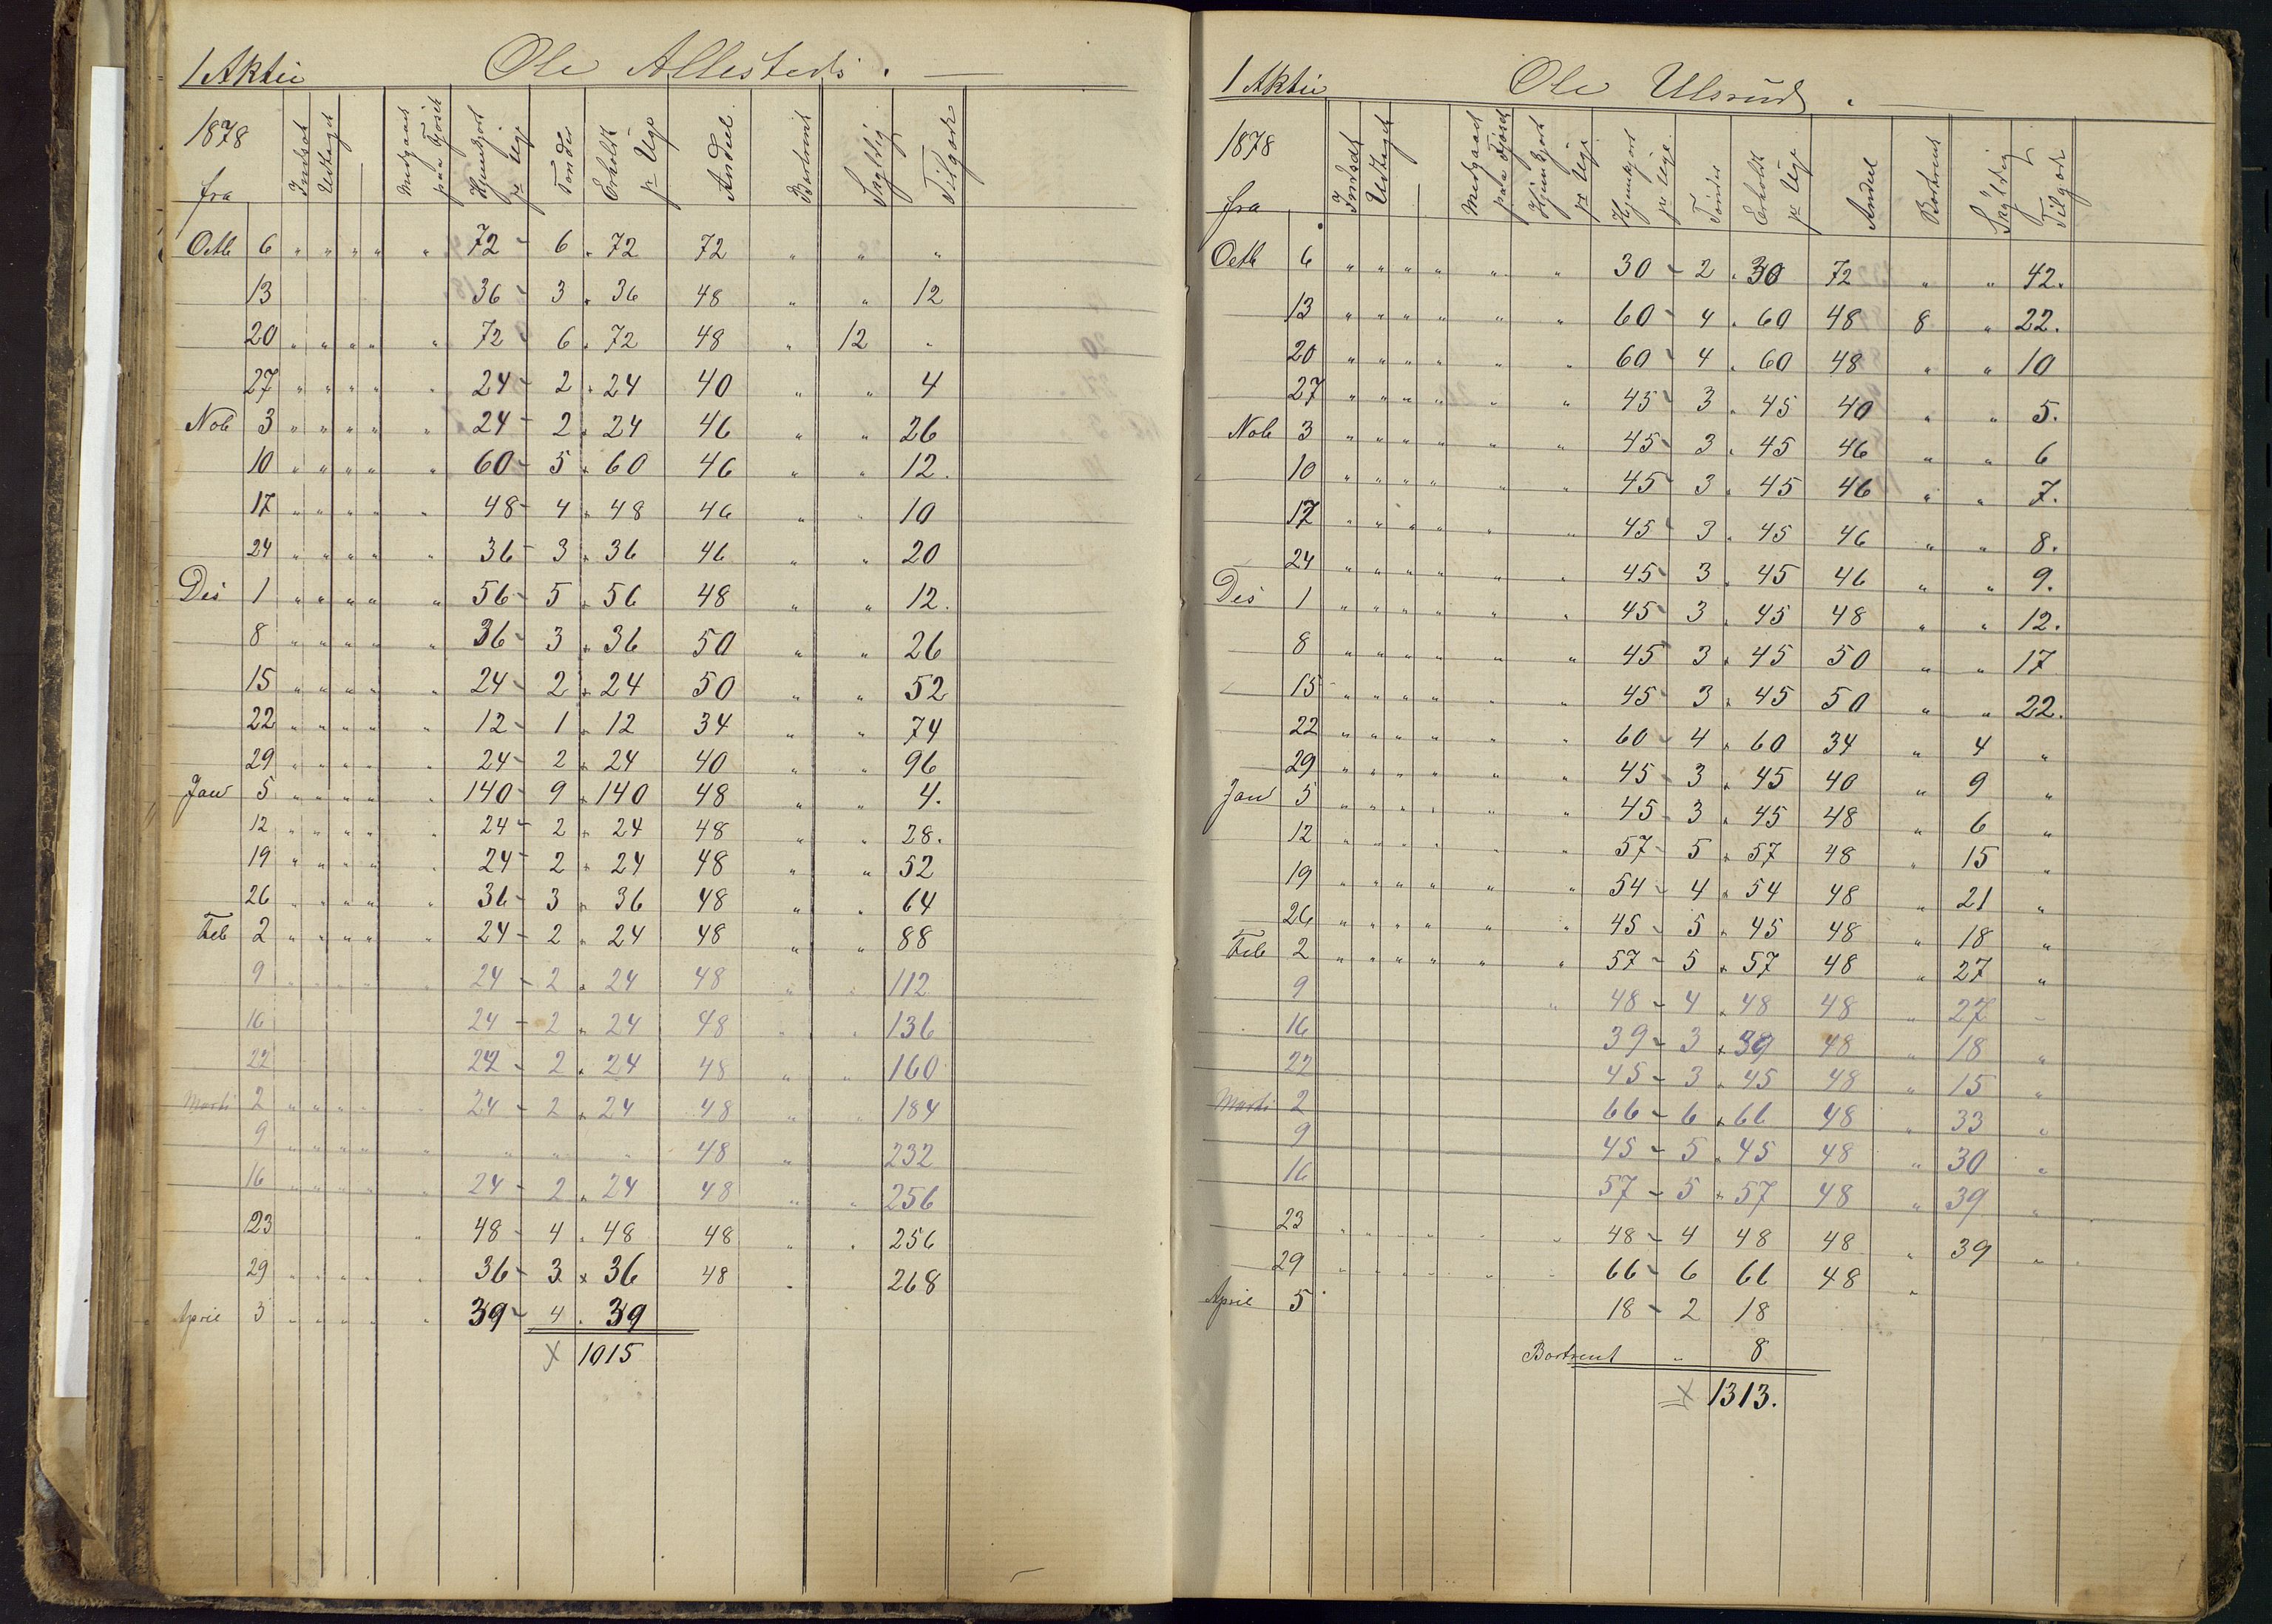 1 Aktie Ole Allesteds.
1878 fra Indsat Udtaget Medgaaet paa Fjöset Hjemkjört pr Uge Tönder Erholdt pr Uge Andeel Bortrent Skyldig Tilgode
Octb 6 " " " " " 72 - 6 " 72 72 " " "
13 36 - 3 " 36 48 " " 12
20 " " " " " 72 - 6 " 72 48 " 12 "
27 " " " " " 24 - 2 " 24 40 " " 4
Nob 3 " " " " " 24 - 2 " 24 46 " " 26
10 " " " " " 60 - 5 " 60 46 " " 12.
17 " " " " " 48 - 4 " 48 46 " " 10
24 " " " " " 36 - 3 " 36 46 " " 20
Des 1 " " " " " 56 - 5 " 56 48 " " 12.
8 " " " " " 36 - 3 " 36 50 " " 26
15 " " " " " 24 - 2 " 24 50 " " 52
22 " " " " " 12 - 1 " 12 34 " " 74
29 " " " " " 24 - 2 " 24 40 " " 96
Jan 5 " " " " " 140 - 9 " 140 48 " " 4.
12 " " " " " 24 - 2 " 24 48 " " 28.
19 " " " " " 24 - 2 " 24 48 " " 52
26 " " " " " 36 - 3 " 36 48 " " 64
Feb 2 " " " " " 24 - 2 " 24 48 " " 88
9 " " " " " 24 - 2 " 24 48 " " 112
16 24 - 2 " 24 48 " " 136
22 24 - 2 " 24 48 " " 160
Marts 2 " " " " " 24 - 2 " 24 48 " " 184
9 " " " " " " " " 48 " 232
16 " " " " " 24 - 2 " 24 48 " " 256
23 " 48 - 4 " 48 48 " " 256
29 " " " " " 36 - 3 " 36 48 " 268
April 3 " " " " " 39 - 4 " 39
X 1015
1 Aktie Ole Ulsrud.
1878 fra Indsat Udtaget Medgaaet paa Fjöset Hjemkjört pr Uge Hjemkjört pr Uge Tönder Erholdt pr Uge Andeel Bortrent Skyldig Tilgode
Octb 6 " " " " " " 30 - 2 " 30 72 " " 42.
13 " " " " " " 60 - 4 " 60 48 8 " 22.
20 " " " " " " 60 - 4 " 60 48 " " 10
27 " " " " " " 45 - 3 " 45 40 " " 5.
Nob 3 " " " " " " 45 - 3 " 45 46 " " 6
10 " " " " " " 45 - 3 " 45 46 " " 7.
17 " " " " " " 45 - 3 " 45 46 " " 8.
24 " " " " " " 45 - 3 " 45 46 " " 9.
Des 1 " " " " " " 45 - 3 " 45 48 " " 12.
8 " " " " " " 45 - 3 " 45 50 " " 17
15 " " " " " " 45 - 3 " 45 50 " " 22.
22 " " " " " " 60 - 4 " 60 34 " 4 "
29 " " " " " " 45 - 3 " 45 40 " 9 "
Jan 5 " " " " " " 45 - 3 " 45 48 " 6 "
12 " " " " " " 57 - 5 " 57 48 " 15 "
19 " " " " " " 54 - 4 " 54 48 " 21 "
26 " " " " " " 45 - 5 " 45 48 " 18 "
Feb 2 " " " " " " 57 - 5 " 57 48 " 27 "
9 " 48 - 4 " 48 48 " 27 -
16 39 - 3 " 39 48 " 18 "
22 45 - 3 " 45 48 " 15 "
Marts 2 66 - 6 " 66 48 " 33 "
9 45 - 5 " 45 48 " 30 "
16 57 - 5 " 57 48 " 39 "
23 " " " " " " 48 - 4 48 48 " 39 "
29 " " " " " " 66 - 6 66 48 "
April 5 18 - 2 18
Bortrent " 8
X 1313.